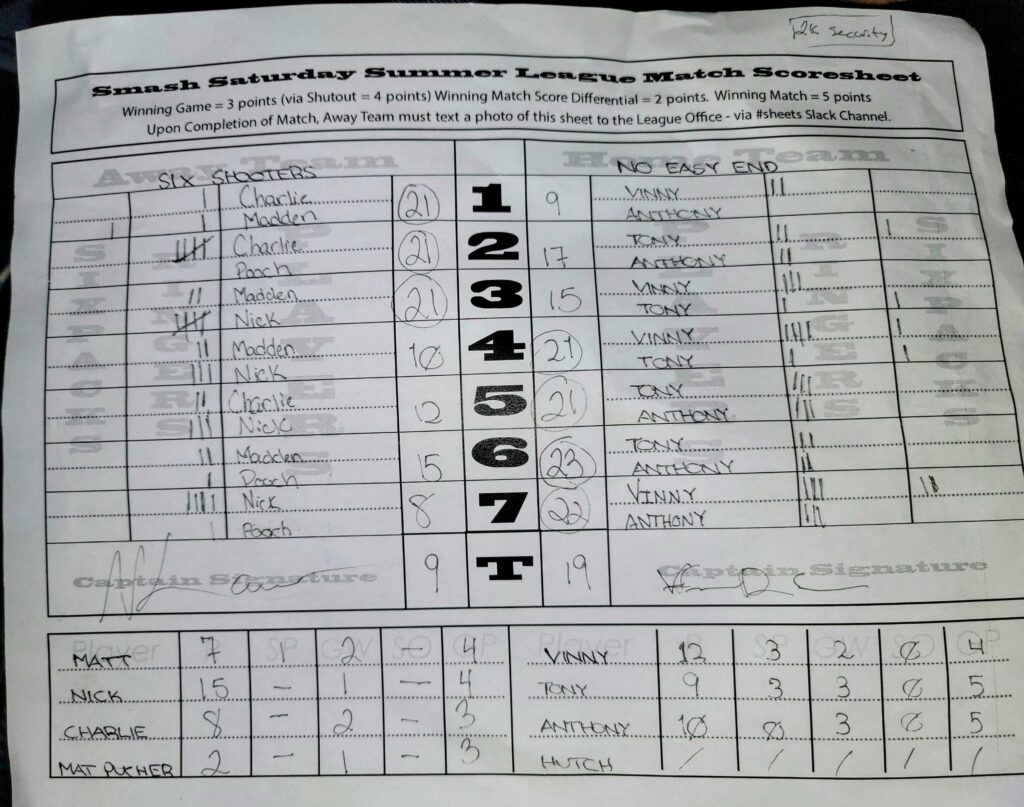 2k Security
Smash Saturday Summer League Match Scoresheet
Winning Game = 3 points (via Shutout = 4 points) Winning Match Score Differential = 2 points. Winning Match = 5 points
Upon Completion of Match, Away Team must text a photo of this sheet to the League Office - via #sheets Slack Channel.
Away Team Home Team
SIX SHOOTERS NO EASY END
SIXPACKS RINGERS PLAYERS PLAYERS RINGERS SIXPACKS
| Charlie 21 1 9 VINNY ||
| | Madden ANTHONY
|||| Charlie 21 2 17 TONY || |
Pooch ANTHONY ||
|| Madden 21 3 15 VINNY |||
|||| Nick TONY | |
|| Madden 10 4 21 VINNY |||| |
||| Nick TONY | |
|| Charlie 12 5 21 TONY |||
||| Nick ANTHONY |||
|| Madden 15 6 23 TONY ||
| Pooch ANTHONY ||
|||| Nick 8 7 22 VINNY ||| ||
| Pooch ANTHONY |||
Captain Signature 9 T 19 Captain Signature
Player R SP GW SO GP Player R SP GW SO GP
MATT 7 1 2 – 4 VINNY 12 3 2 0 4
NICK 15 – 1 – 4 TONY 9 3 3 0 5
CHARLIE 8 – 2 – 3 ANTHONY 10 0 3 0 5
MAT 2 – 1 – 3 HUTCH / / / / /